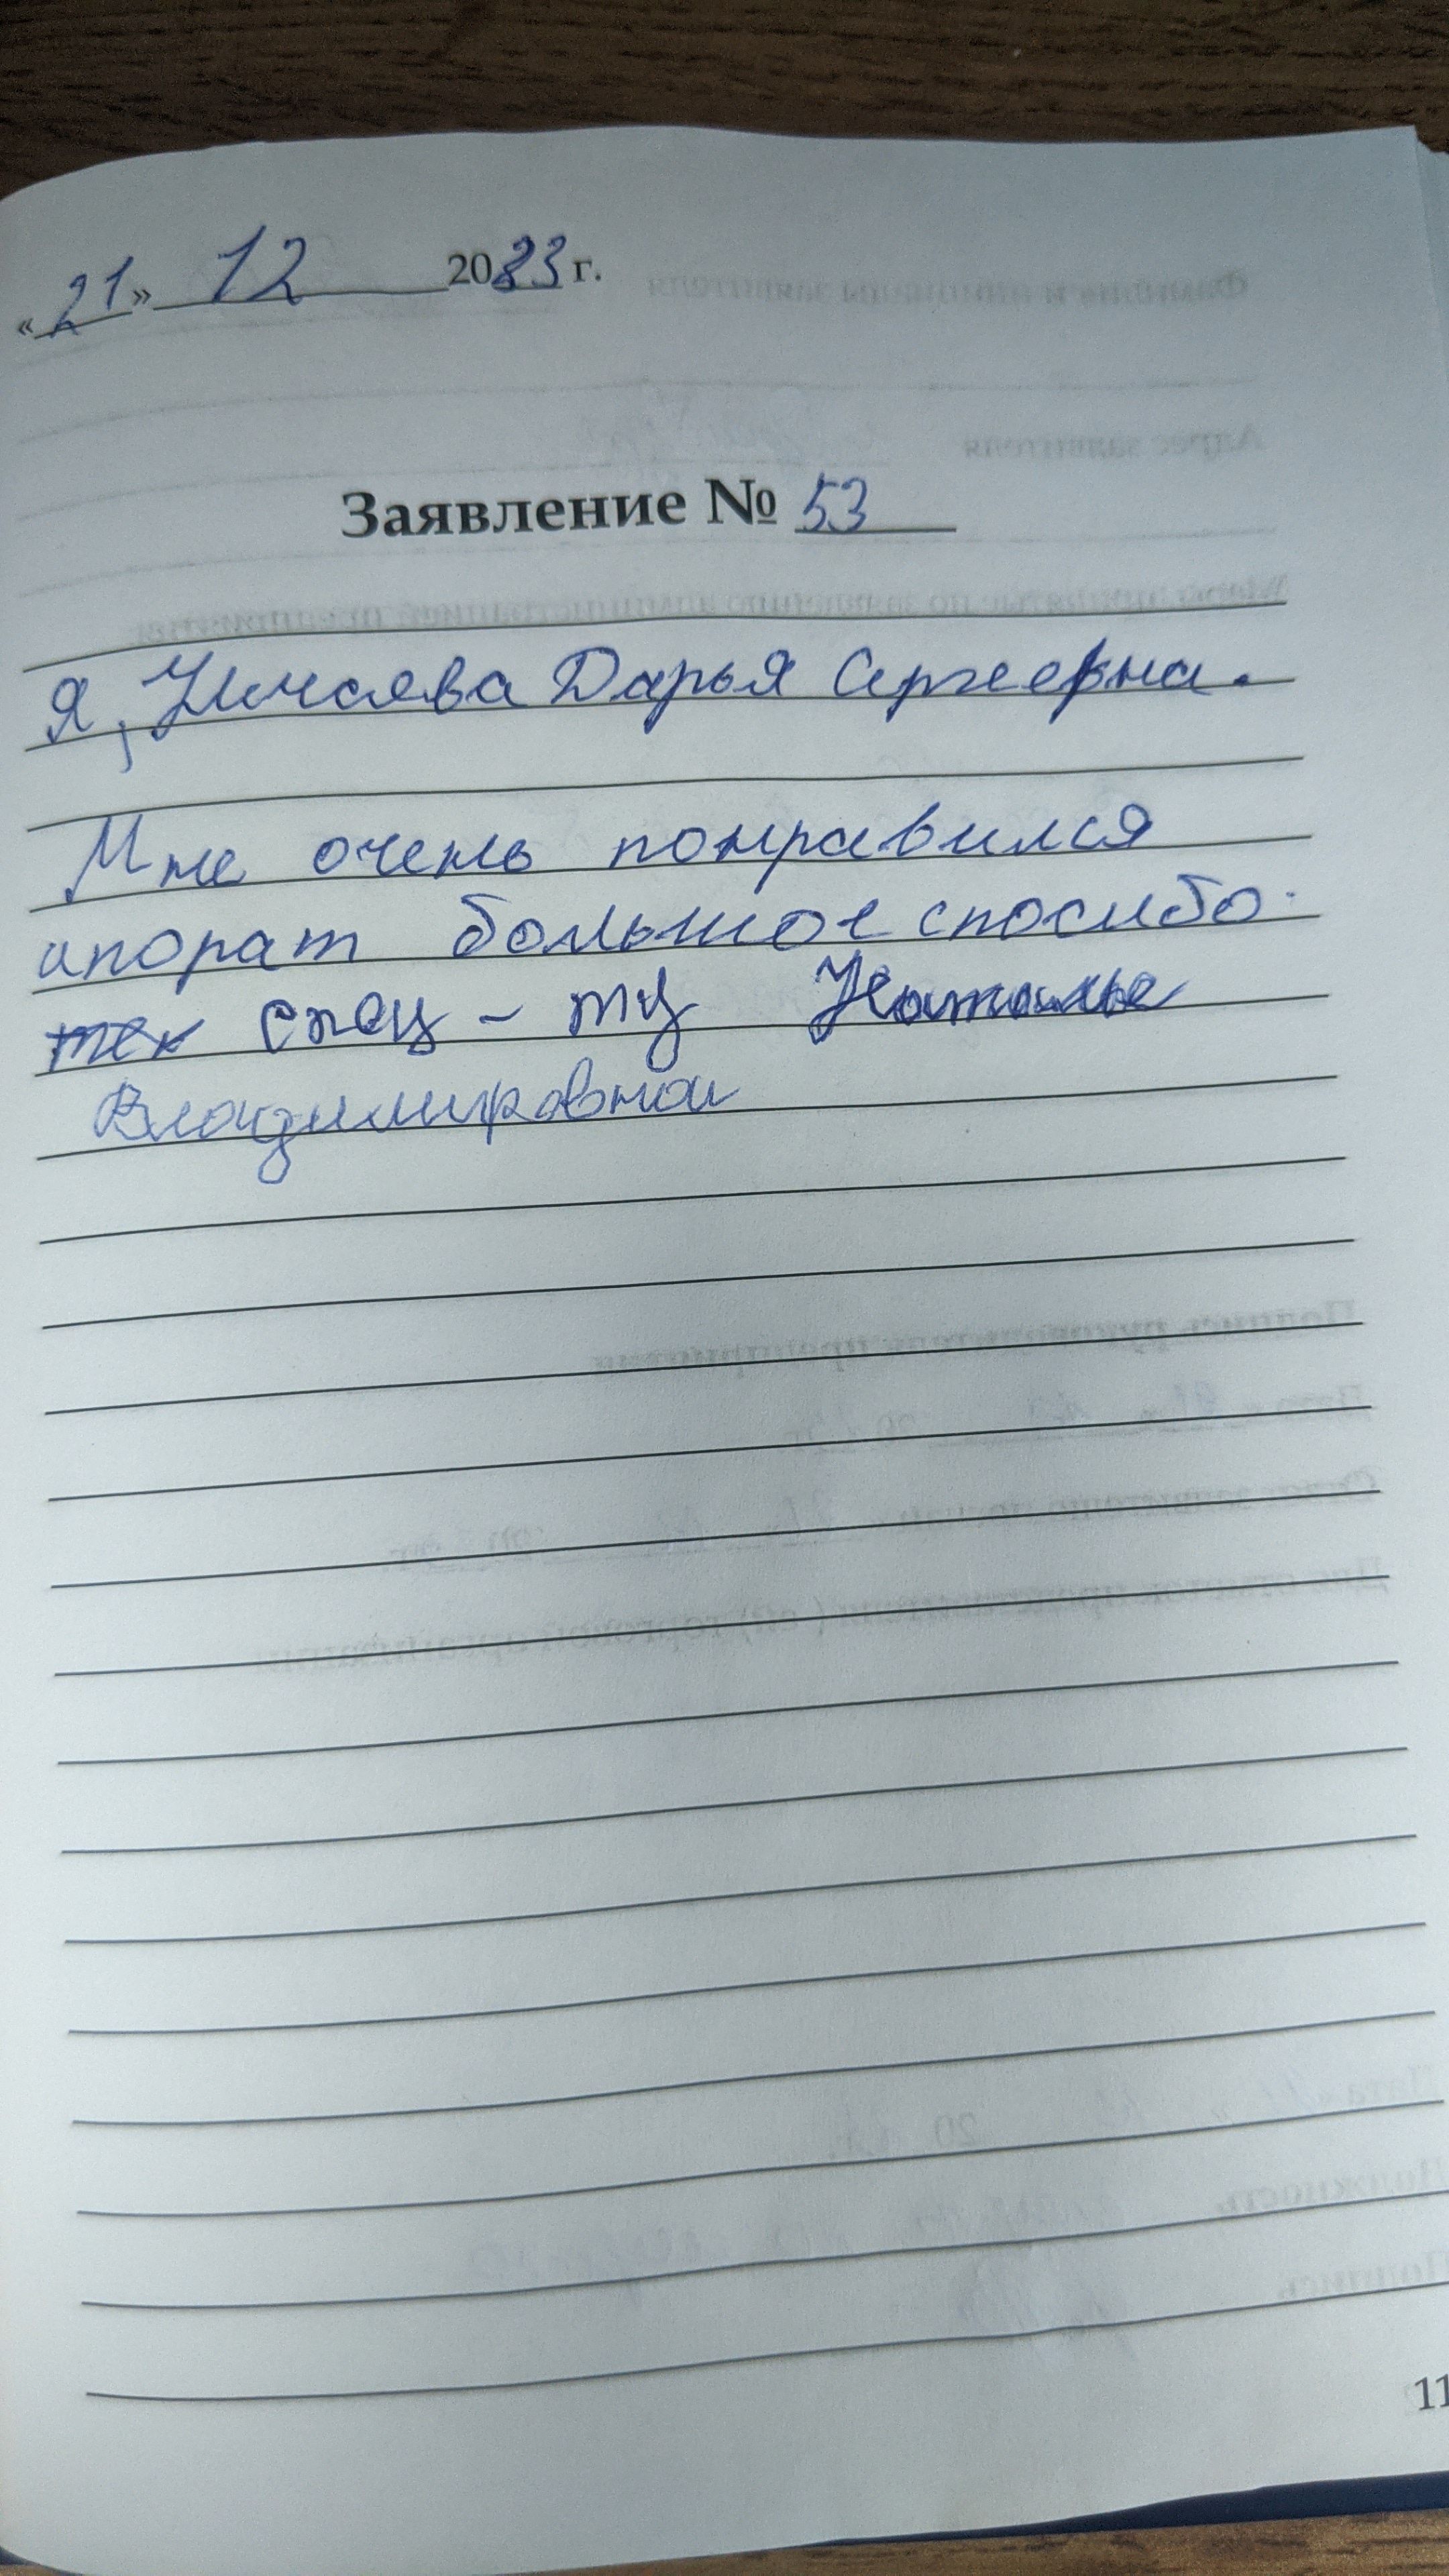 «21» 12 2023 г.
Заявление № 53
Я, Дарья Сергеевна.
Мне очень понравился
апорат большое спосибо
спец-ту Наталье
Владимировной
11